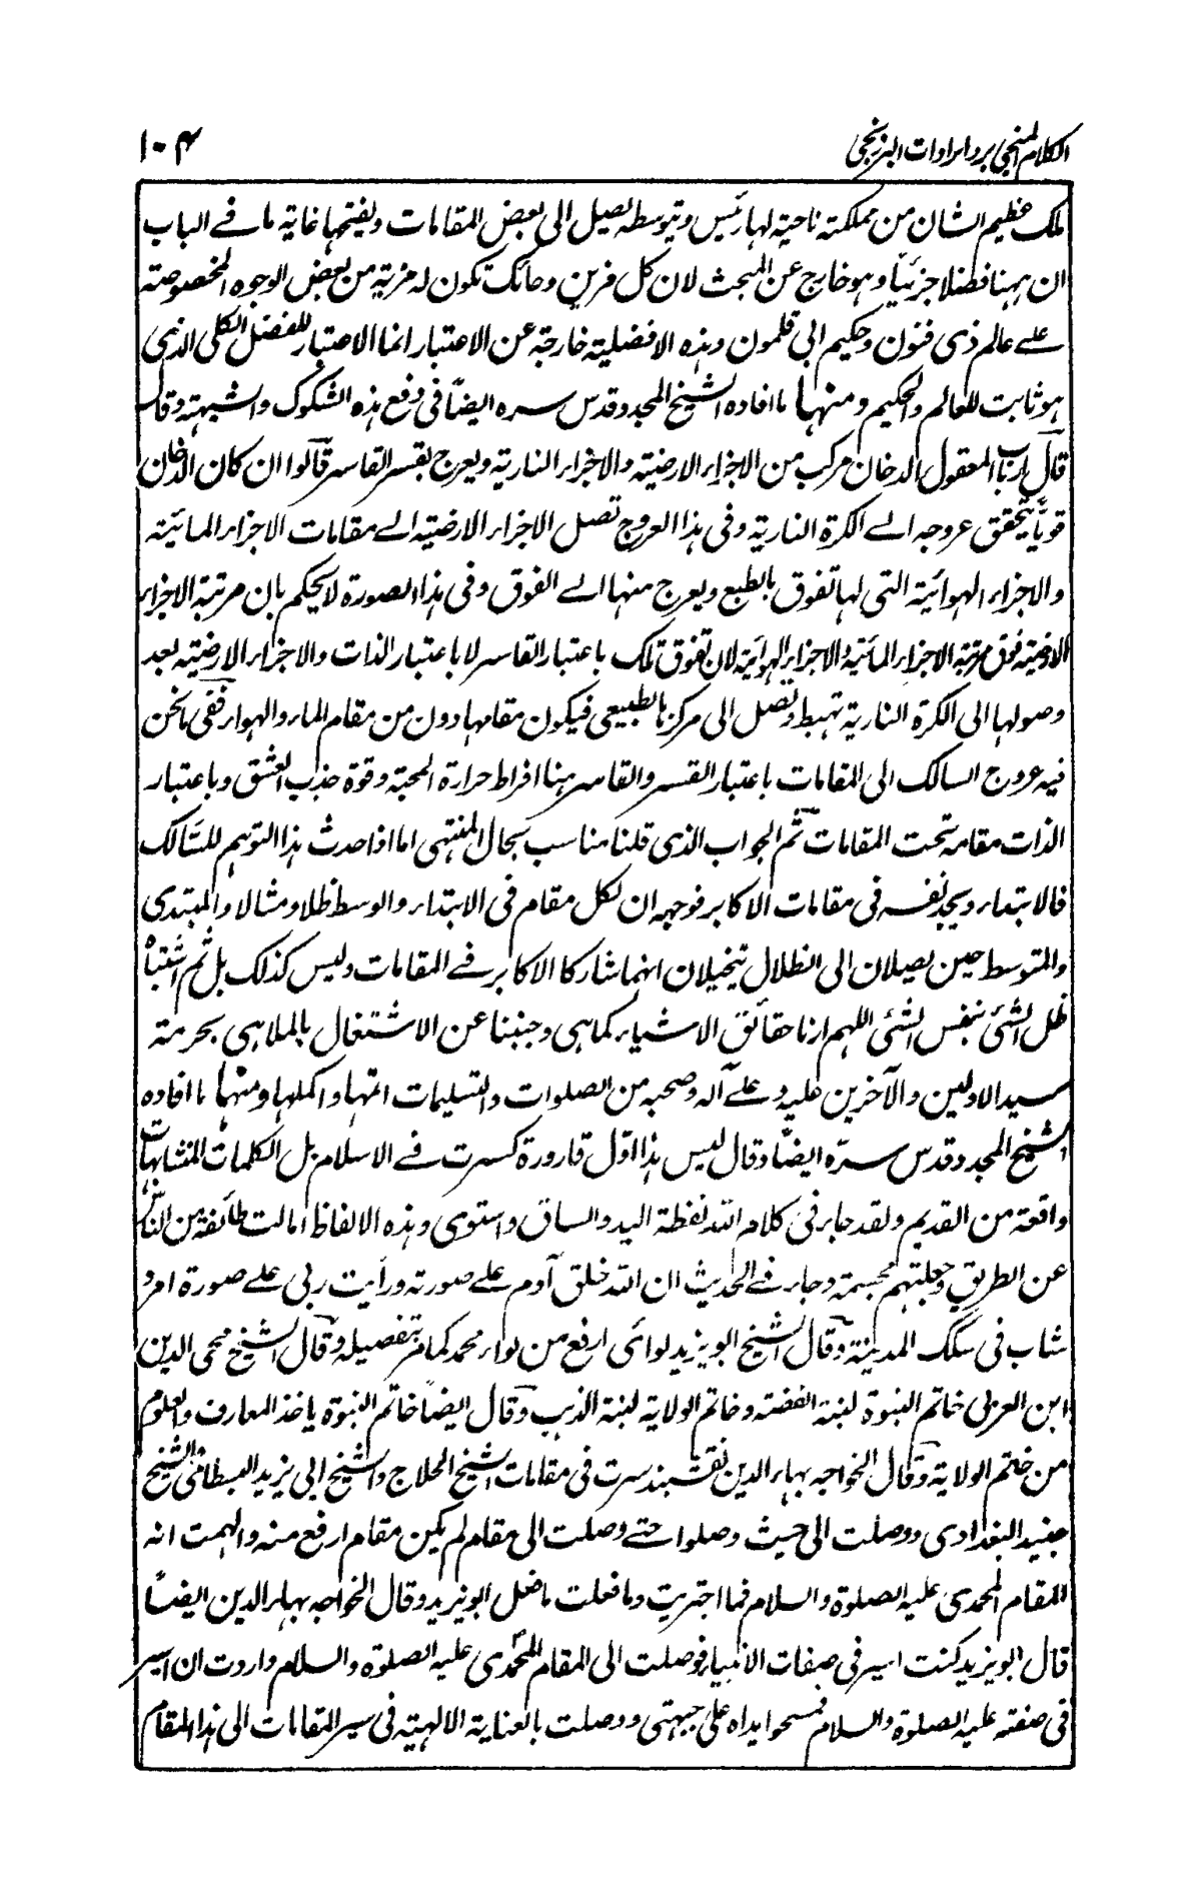 الكلام المنجي برد ايرادات البرزنجي
۱۰۴
ملك عظيم الشان من مملكته ناحية لها رئيس وبتوسطه يصل الى بعض المقامات ويفتحها غاية ما في الباب
ان ههنا فضلا جزئيا وهو خارج عن المبحث لان كل فرين وحائك تكون له مزية من بعض الوجوه المخصوصة
على عالم ذى فنون وحكيم ابي قلمون وهذه الافضلية خارجة عن الاعتبار انما الاعتبار للفضل الكلي الذي
هو ثابت للعالم والحكيم ومنها ما افاده الشيخ المجدد قدس سره ايضًا في دفع هذه الشكوك والشبهة وقال
قال ارباب المعقول الدخان مركب من الاجزاء الارضية والاجزاء النارية ويعرج بقسر القاسر قالوا ان كان الدخان
قويًا يتحقق عروجه الى الكرة النارية وفى هذا العروج تصل الاجزاء الارضية الى مقامات الاجزاء المائية
والاجزاء الهوائية التى لها تفوق بالطبع ويعرج منها الى الفوق وفى هذا الصورة لا يحكم بان مرتبة الاجزاء
الارضية فوق مرتبة الاجزاء المائية والاجزاء الهوائية لان تفوق تلك باعتبار القاسر لا باعتبار الذات والاجزاء الارضية بعد
وصولها الى الكرة النارية تهبط وتصل الى مركزها الطبيعي فيكون مقامها دون من مقام الماء والهواء ففى ما نحن
فيه عروج السالك الى المقامات باعتبار القسر والقاسر هنا افراط حرارة المحبة وقوة جذب العشق وباعتبار
الذات مقامه تحت المقامات ثم الجواب الذى قلنا مناسب بحال المنتهى اما اذا حدث هذا التوهم للسَّالك
فالابتداء ويجد نفسه فى مقامات الاكابر فوجهه ان لكل مقام فى الابتداء والوسط ظلا ومثالا والمبتدى
والمتوسط حين يصلان الى الظلال يتخيلان انهما شاركا الاكابر فى المقامات وليس كذلك بل ثم اشتباه
ظل الشئ بنفس الشئ اللهم ارنا حقائق الاشياء كما هى وجنبنا عن الاشتغال بالملاهى بحرمة
سيد الاولين والآخرين عليه وعلى آله وصحبه من الصلوات والتسليمات اتمها واكملها ومنها ما افاده
الشيخ المجدد قدس سرّه ايضًا وقال ليس هذا اوّل قارورة كسرت فى الاسلام بل الكلمات المتشابهات
واقعة من القديم ولقد جاء فى كلام الله لفظة اليد والساق واستوى وهذه الالفاظ امالت طائفة من النّاس
عن الطريق وجعلتهم مجسمة وجاء فى الحديث ان الله خلق آدم على صورته ورأيت ربى على صورة امرد
شاب فى سكك المدينة وقال الشيخ ابو يزيد لوائى ارفع من لواء محمد كما مر بتفصيله وقال الشيخ محى الدين
ابن العربى خاتم النبوة لبنة الفضة وخاتم الولاية لبنة الذهب وقال ايضًا خاتم النبوة ياخذ المعارف والعلوم
من ختم الولاية وقال الخواجه بهاء الدين نقشبند سرت فى مقامات الشيخ الحلاج والشيخ ابى يزيد البسطامى والشيخ
جنيد البغدادى ووصلت الى حيث وصلوا حتى وصلت الى مقام لم يكن مقام ارفع منه والهمت انه
المقام المحمدى عليه الصلوة والسلام فما اجتريت وما فعلت ما فعل ابو يزيد وقال الخواجه بهاء الدين ايضًا
قال ابو يزيد كنت اسير فى صفات الانبياء فوصلت الى المقام المحمّدى عليه الصلوة والسلام واردت ان اسير
فى صفته عليه الصلوة والسلام فمسحوا يداه على جبهتى ووصلت بالعناية الالهية فى سير المقامات الى هذا المقام